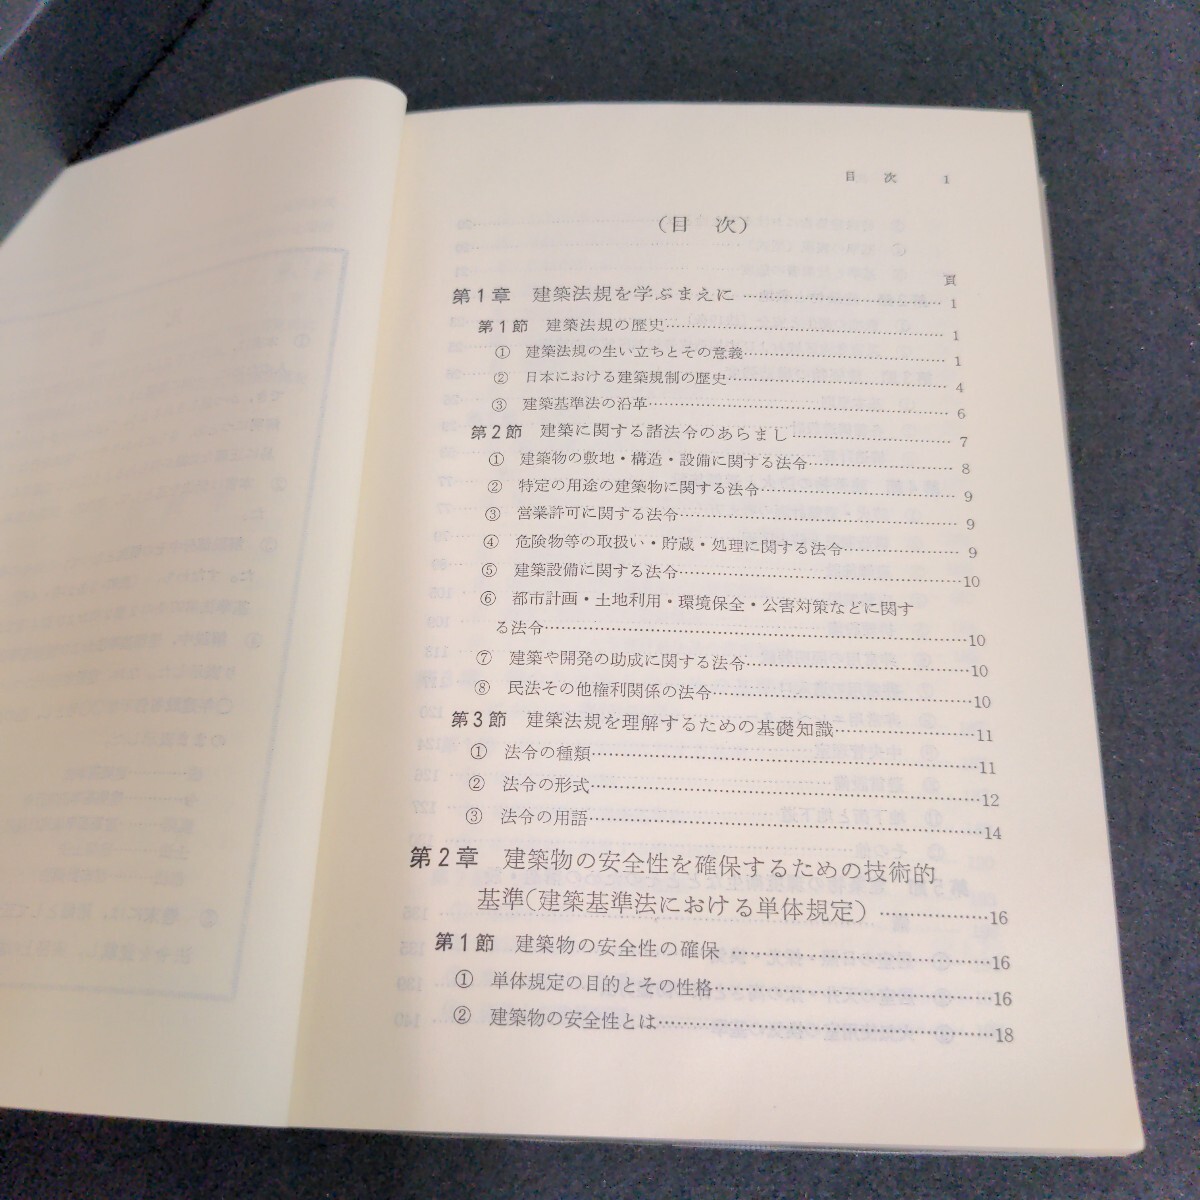 目　次　1
（目　次）
頁
第1章　建築法規を学ぶまえに……………………1
第1節　建築法規の歴史……………………1
①　建築法規の生い立ちとその意義……………………1
②　日本における建築規制の歴史……………………4
③　建築基準法の沿革……………………6
第2節　建築に関する諸法令のあらまし……………………7
①　建築物の敷地・構造・設備に関する法令……………………8
②　特定の用途の建築物に関する法令……………………9
③　営業許可に関する法令……………………9
④　危険物等の取扱い・貯蔵・処理に関する法令……………………9
⑤　建築設備に関する法令……………………10
⑥　都市計画・土地利用・環境保全・公害対策などに関す
る法令……………………10
⑦　建築や開発の助成に関する法令……………………10
⑧　民法その他権利関係の法令……………………10
第3節　建築法規を理解するための基礎知識……………………11
①　法令の種類……………………11
②　法令の形式……………………12
③　法令の用語……………………14
第2章　建築物の安全性を確保するための技術的
基準（建築基準法における単体規定）……………………16
第1節　建築物の安全性の確保……………………16
①　単体規定の目的とその性格……………………16
②　建築物の安全性とは……………………18